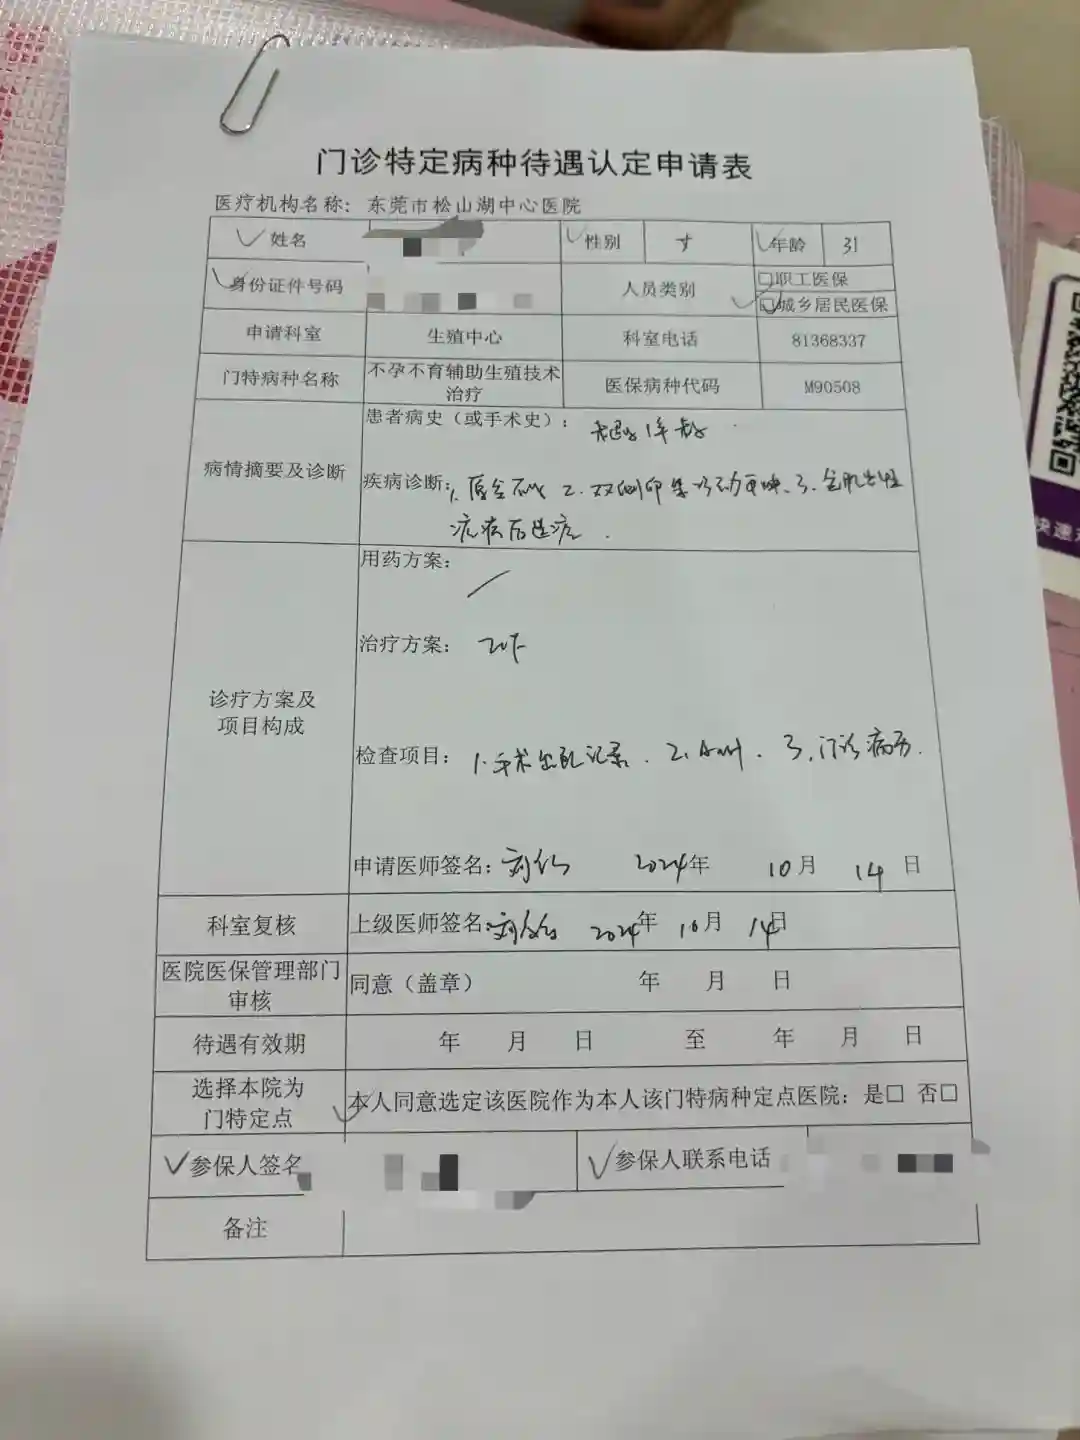 门诊特定病种待遇认定申请表
医疗机构名称：东莞市松山湖中心医院
姓名 性别 年龄 31
身份证件号码 人员类别 □职工医保
□城乡居民医保
申请科室 生殖中心 科室电话 81368337
门特病种名称 不孕不育辅助生殖技术治疗 医保病种代码 M90508
病情摘要及诊断
患者病史（或手术史）：
疾病诊断：1. 2. 双侧卵巢 3.
诊疗方案及
项目构成
用药方案：
治疗方案：
检查项目：1.手术 记录. 2. AMH. 3.门诊病历.
申请医师签名： 2024年 10月 14日
科室复核 上级医师签名： 2024年 10月 14日
医院医保管理部门
审核
同意（盖章） 年 月 日
待遇有效期 年 月 日 至 年 月 日
选择本院为
门特定点
本人同意选定该医院作为本人该门特病种定点医院：是□ 否□
参保人签名 参保人联系电话
备注
快速